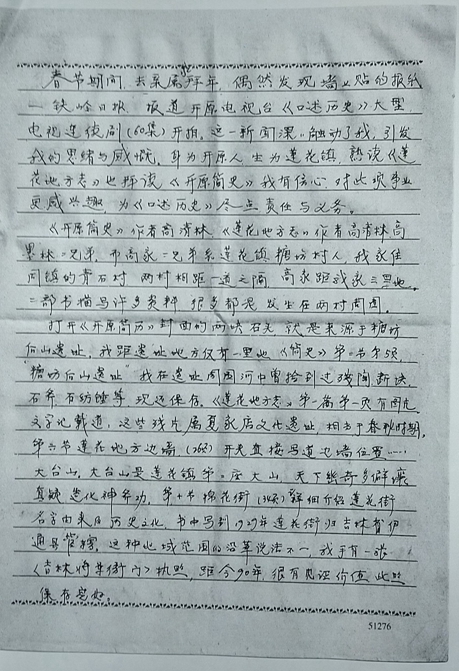 春节期间，去亲属家拜年，偶然发现墙上贴的报纸
一铁岭日报，报道开原电视台《口述历史》大型
电视连续剧（60集）开拍，这一新闻深深触动了我，引发
我的思绪与感慨，身为开原人生为莲花镇，熟读《莲
花地方志》也拜读《开原简史》我有信心对此项事业
更感兴趣，为《口述历史》尽一点责任与义务。
《开原简史》作者高清林，《莲花地方志》作者高青林高
林二兄弟，而高家二兄弟系莲花镇糖坊村人，我家住
同镇的青石村 两村相距一道之隔，高家距我家三里地，
二部书描写许多资料 很多都是发生在两村周围。
打开《开原简历》封面的两块石头，就是来源于糖坊
后山遗址，我距遗址地方仅有一里地《简史》第二节
"糖坊后山遗址" 我在遗址周围河中曾捡到过残陶新诀
石斧石纺缍等 现还保存，《莲花地方志》第一篇第一页有图片
文字记载道，这些残片属夏家店文化遗址 相当于春秋时期，
第六节莲花地方边墙 开
大台山，大台山是莲花镇第一座大山，天下幽奇多僻壤
真疑造化神斧功，第十节棉花街 详细介绍莲花街
名字由来及历史文化 书中写到1929年莲花街归吉林省伊
通县管辖，这种地域范围的沿革说法不一，我手有一张
《吉林将军衙门》执照，距今90年，很有见证价值，此照
保存完好。
51276